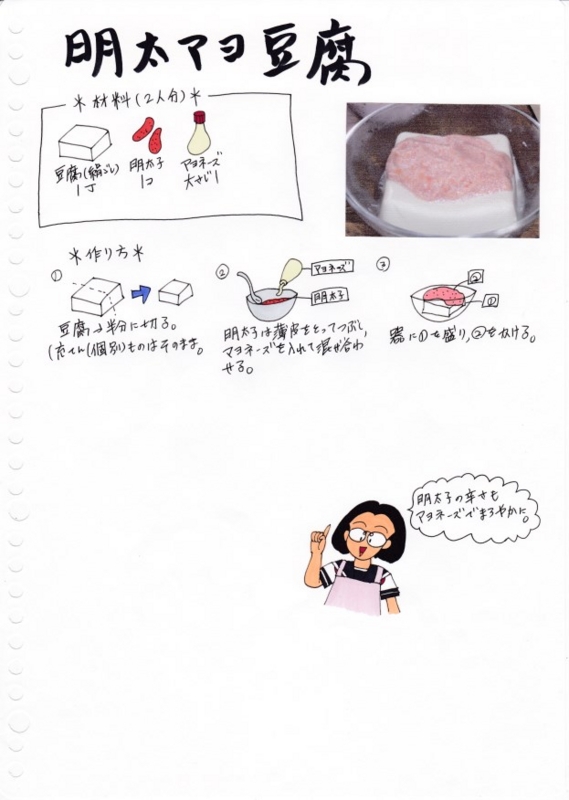 明太マヨ豆腐
*材料(2人分)*
豆腐(絹ごし)
1丁
明太子
1コ
マヨネーズ
大さじ1
*作り方*
①
豆腐は半分に切る。
(充てん(個別)ものはそのまま。
②
マヨネーズ
明太子
明太子は薄皮をとってつぶし、
マヨネーズを入れて混ぜ合わ
せる。
③
②
①
器に①を盛り、②をかける。
明太子の辛さも
マヨネーズでまろやかに。